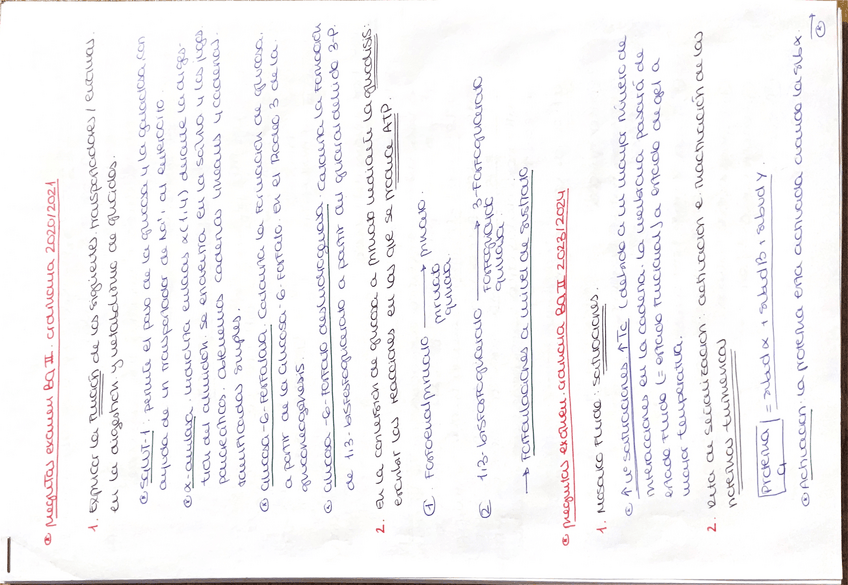 * Preguntas examen BQ II. ordinaria 2020/2021
1. Explicar la función de los siguientes transportadores / enzimas
en la digestión y metabolismo de glúcidos.
* SGLUT-1: permite el paso de la glucosa y la galactosa, con
ayuda de un transportador de Na⁺, al enterocito.
* α-amilasa: hidroliza enlaces α(1,4) durante la diges-
tión del almidón. se encuentra en la saliva y los jugos
pancreáticos. obtenemos cadenas lineales y cadenas
ramificadas simples.
* Glucosa-6-Fosfatasa. Cataliza la formación de glucosa
a partir de la Glucosa-6-Fosfato en el Rodeo 3 de la
gluconeogénesis.
* Glucosa-6-Fosfato deshidrogenasa. Cataliza la formación
de 1,3-bisfosfoglicerato a partir del gliceraldehído 3-P.
2. En la conversión de glucosa a piruvato mediante la glucólisis:
escribir las reacciones en las que se produce ATP.
① Fosfoenolpiruvato → piruvato.
piruvato
quinasa.
② 1,3-bisfosfoglicerato → 3-Fosfoglicerato
Fosfoglicerato
quinasa.
→ Fosforilaciones a nivel de sustrato
* Preguntas examen ordinaria BQ II 2023/2024
1. Mosaico Fluido: saturaciones.
* ↑ nº saturaciones ↑Tc (debido a un mayor número de
interacciones en la cadena. la membrana pasará de
estado Fluido (= estado Funcional) a estado de gel a
mayor temperatura.
2. Ruta de señalización: activación e inactivación de las
proteínas triméricas
Proteína G = subud α + subud β + subud γ.
* Activación: la proteína está activada cuando la sub α.